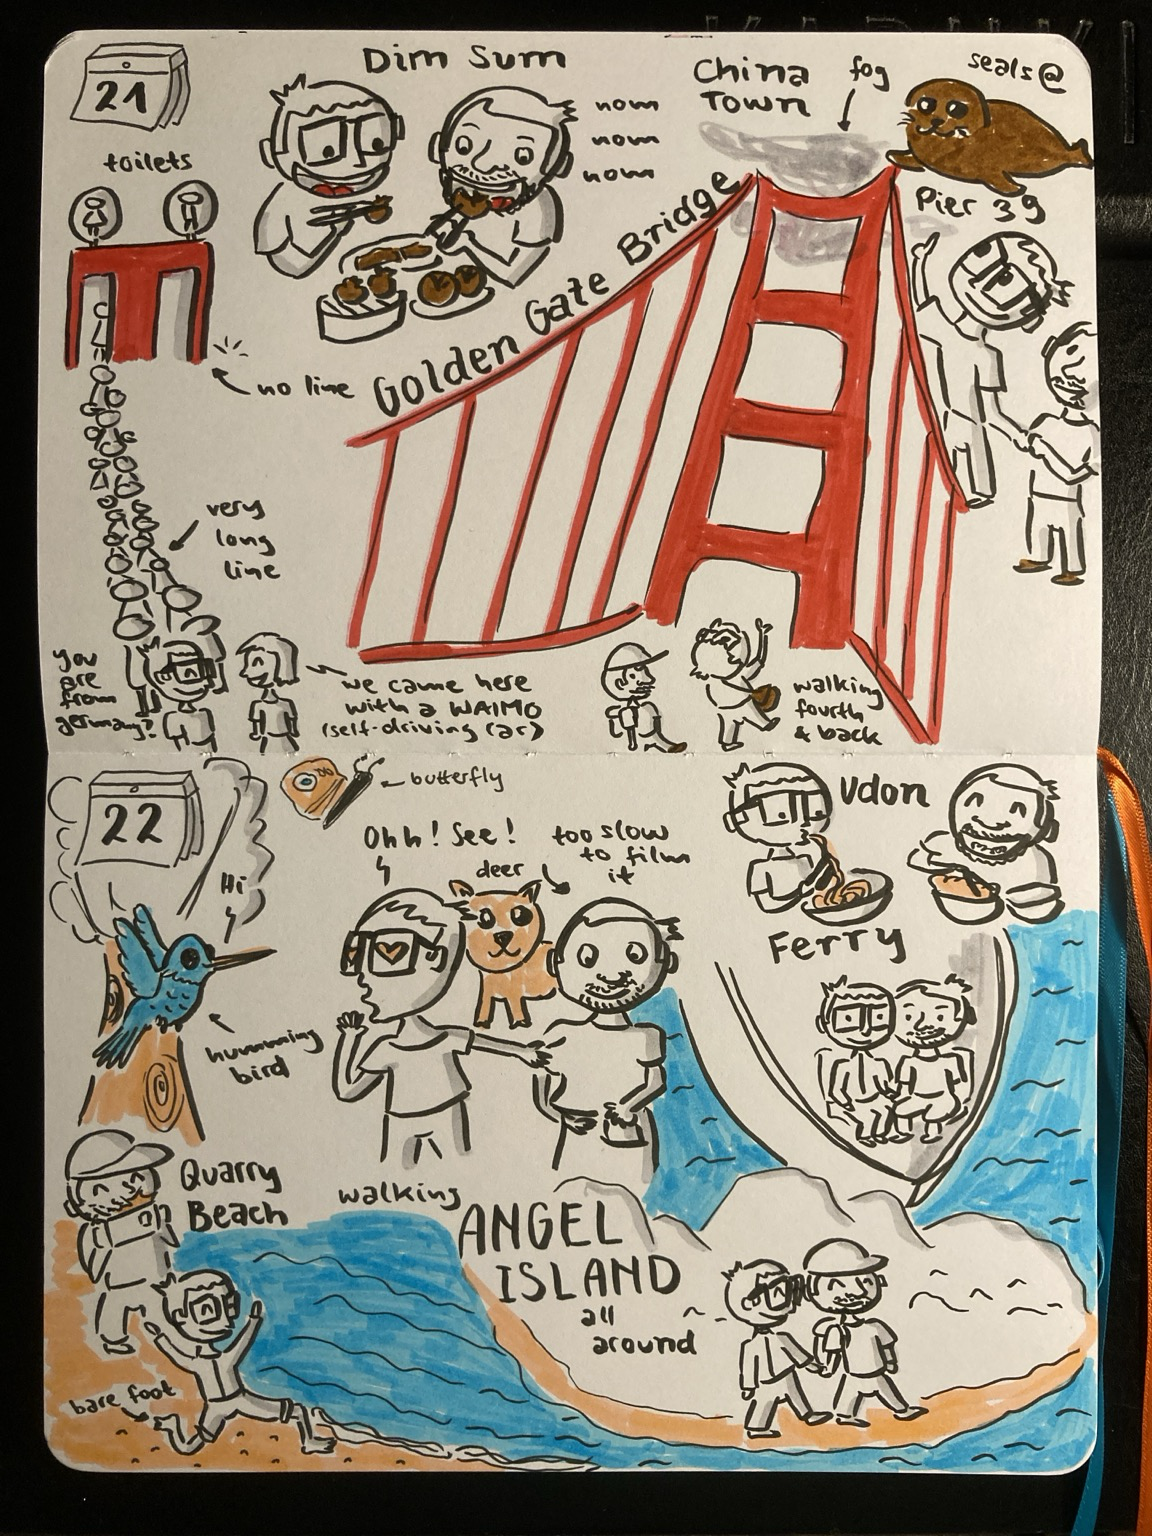 21
Dim Sum
nom
nom
nom
China
Town
fog
seals@
Pier 39
toilets
no line
Golden Gate Bridge
very
long
line
you
are
from
germany?
we came here
with a WAIMO
(self-driving car)
walking
fourth
& back
22
butterfly
Hi
humming
bird
Ohh! See!
deer
too slow
to film
it
Udon
Ferry
Quarry
Beach
walking
ANGEL
ISLAND
all
around
bare foot